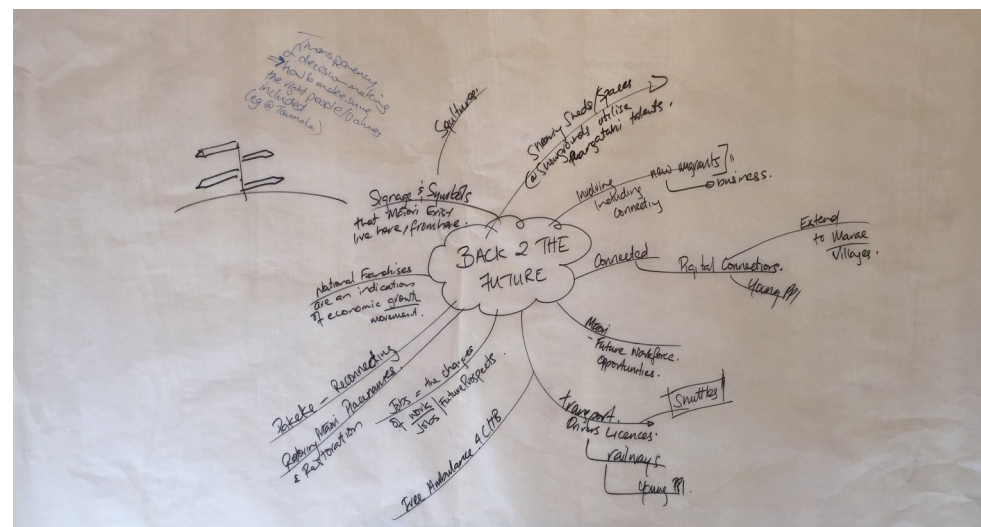 Transparency
of decision making
⇒ how to make sure
the right people/values
included
(eg @ Taumata)
Sculptures.
Shearing Sheds/Spaces
@ Showgrounds utilise
Rangatahi talents.
Involving
Including
Connecting
new migrants
business.
Signage & Symbols
that Maori Exist
live here/from here.
BACK 2 THE
FUTURE
Connected
Digital Connections.
Extend
to Marae
Villages.
Young PPl
National Franchises
are an indication
of economic growth
movement.
Maori
Future Workforce
Opportunities.
Pakeke - Reconnecting
Maori Placenames.
& Restoration
Jobs = the changes
of work
Jobs / Future Prospects.
Free Ambulance 4 CHB
Transport.
Drivers Licences.
Shuttles
railways
Young PPl.